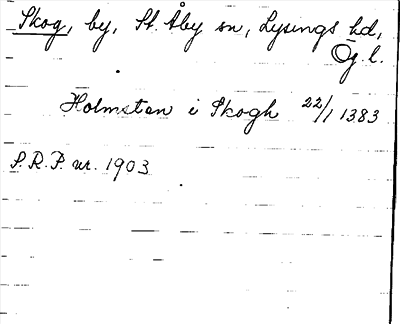 Skog, by, St. Åby sn, Lysings hd,
Ög. l.
Holmsten i Skogh 22/1 1383
S.R.P. nr. 1903